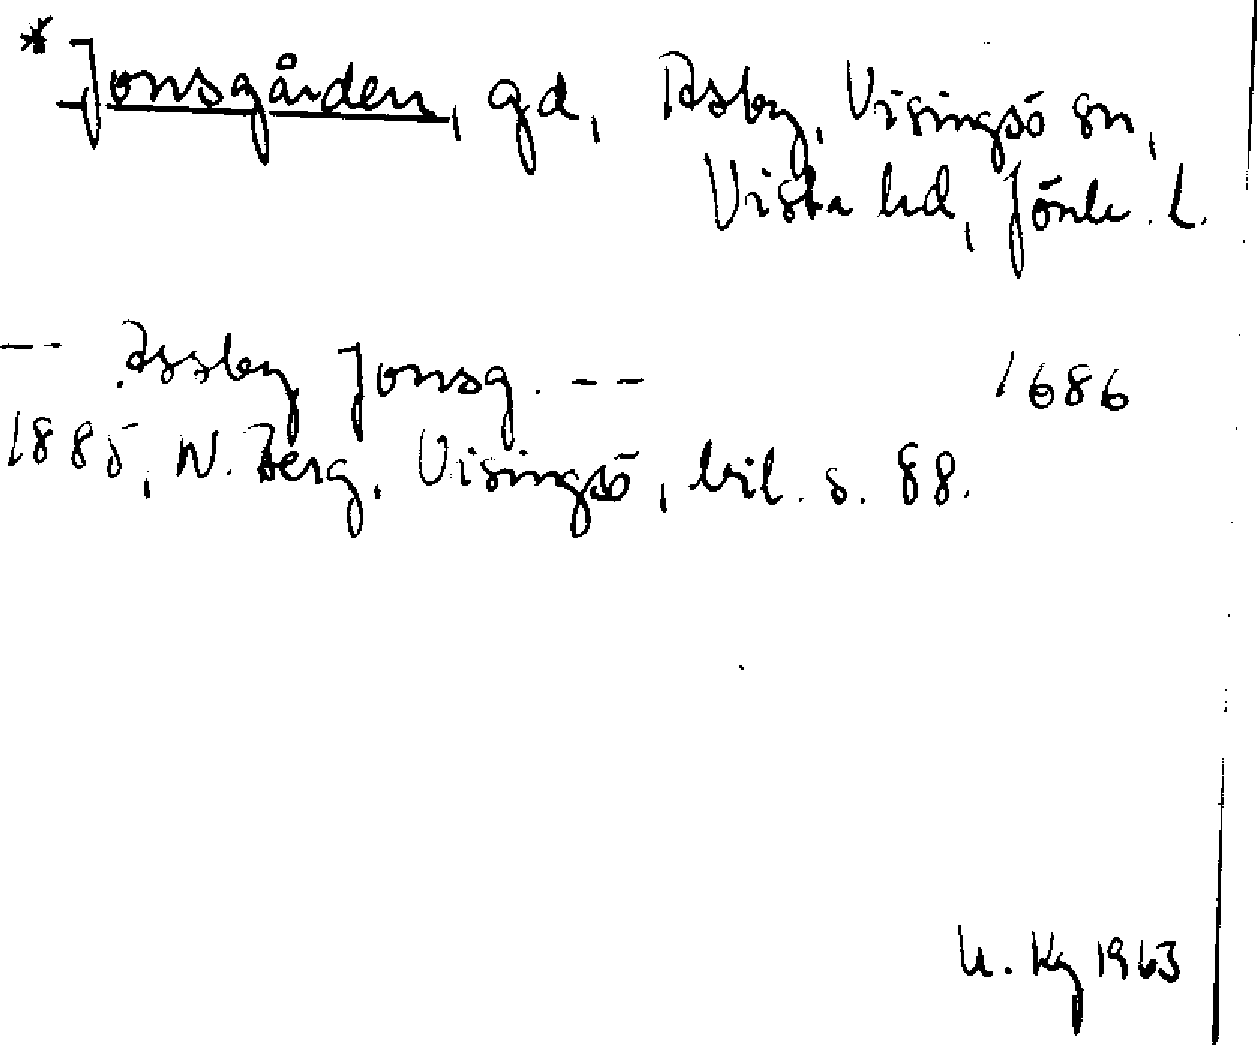 * Jonsgården, gd, Rsby, Visingsö sn,
Vista hd, Jönk. L.
-- Assby Jonsg. -- 1686
1885, W. Berg, Visingsö, bil. s. 88.
U. Kg 1963